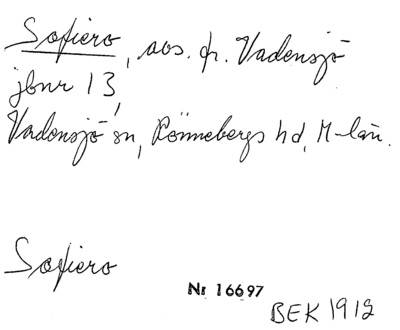 Sofiero, avs. fr. Vadensjö
jbnr 13,
Vadensjö sn, Rönnebergs hd, M-län.
Sofiero
Nr 16697
BEK 1912